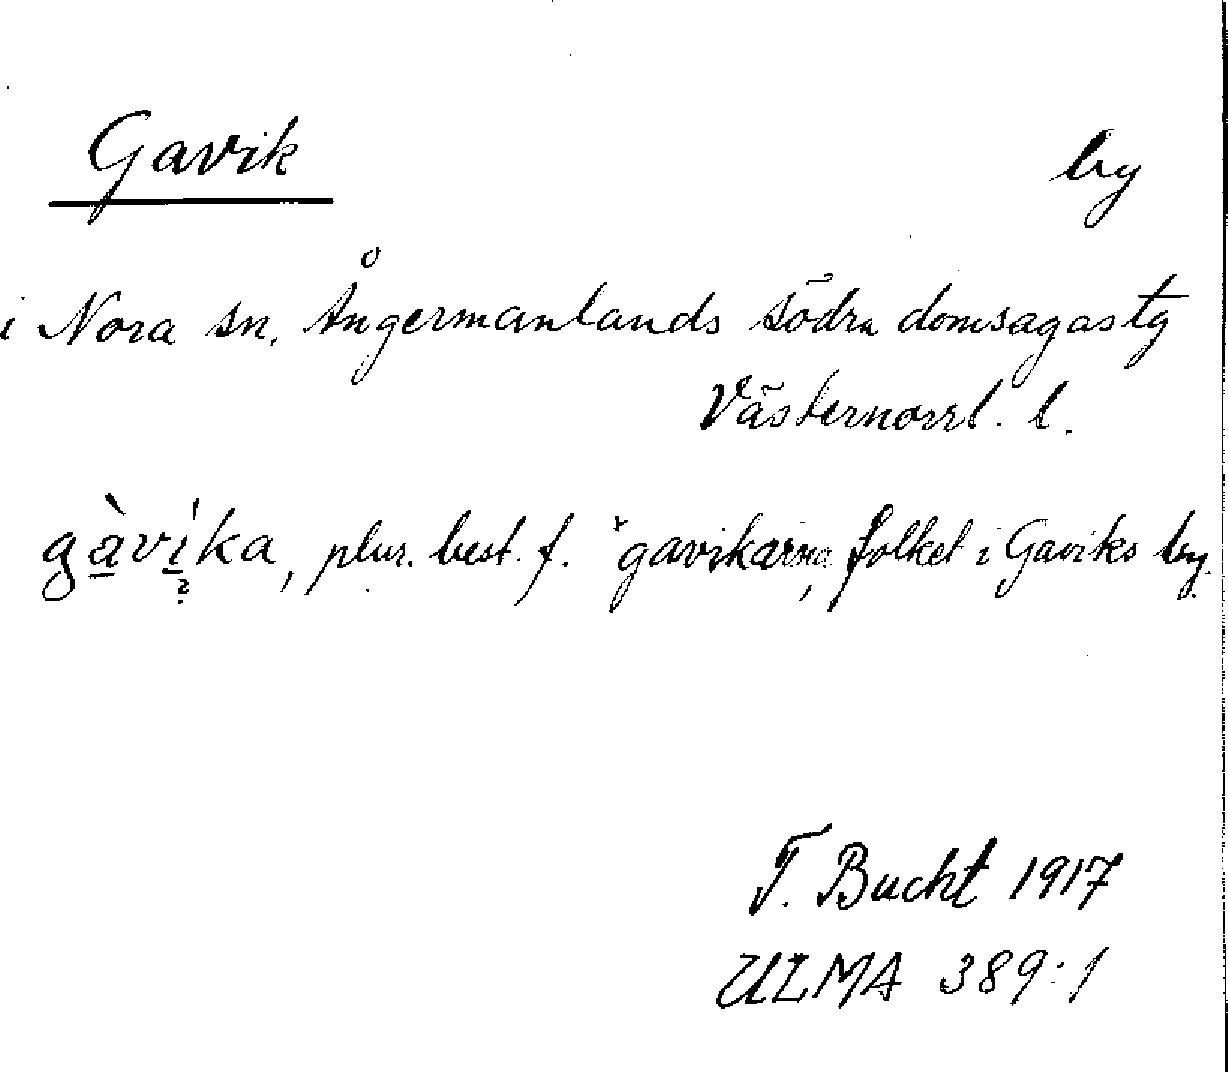 Gavik by
i Nora sn. Ångermanlands södra domsagas tg
Västernorrl. l.
gàvíka, plur. best. f. *gavikarna, folket i Gaviks by.
?
T. Bucht 1917
ULMA 389:1